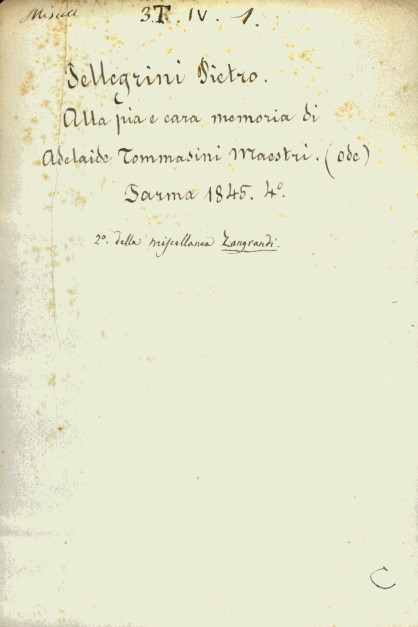 Miscell 3T. IV. 1.
Pellegrini Pietro.
Alla pia e cara memoria di
Adelaide Tommasini Maestri. (ode)
Parma 1845. 4º.
2º. della miscellanea Zangrandi.
C